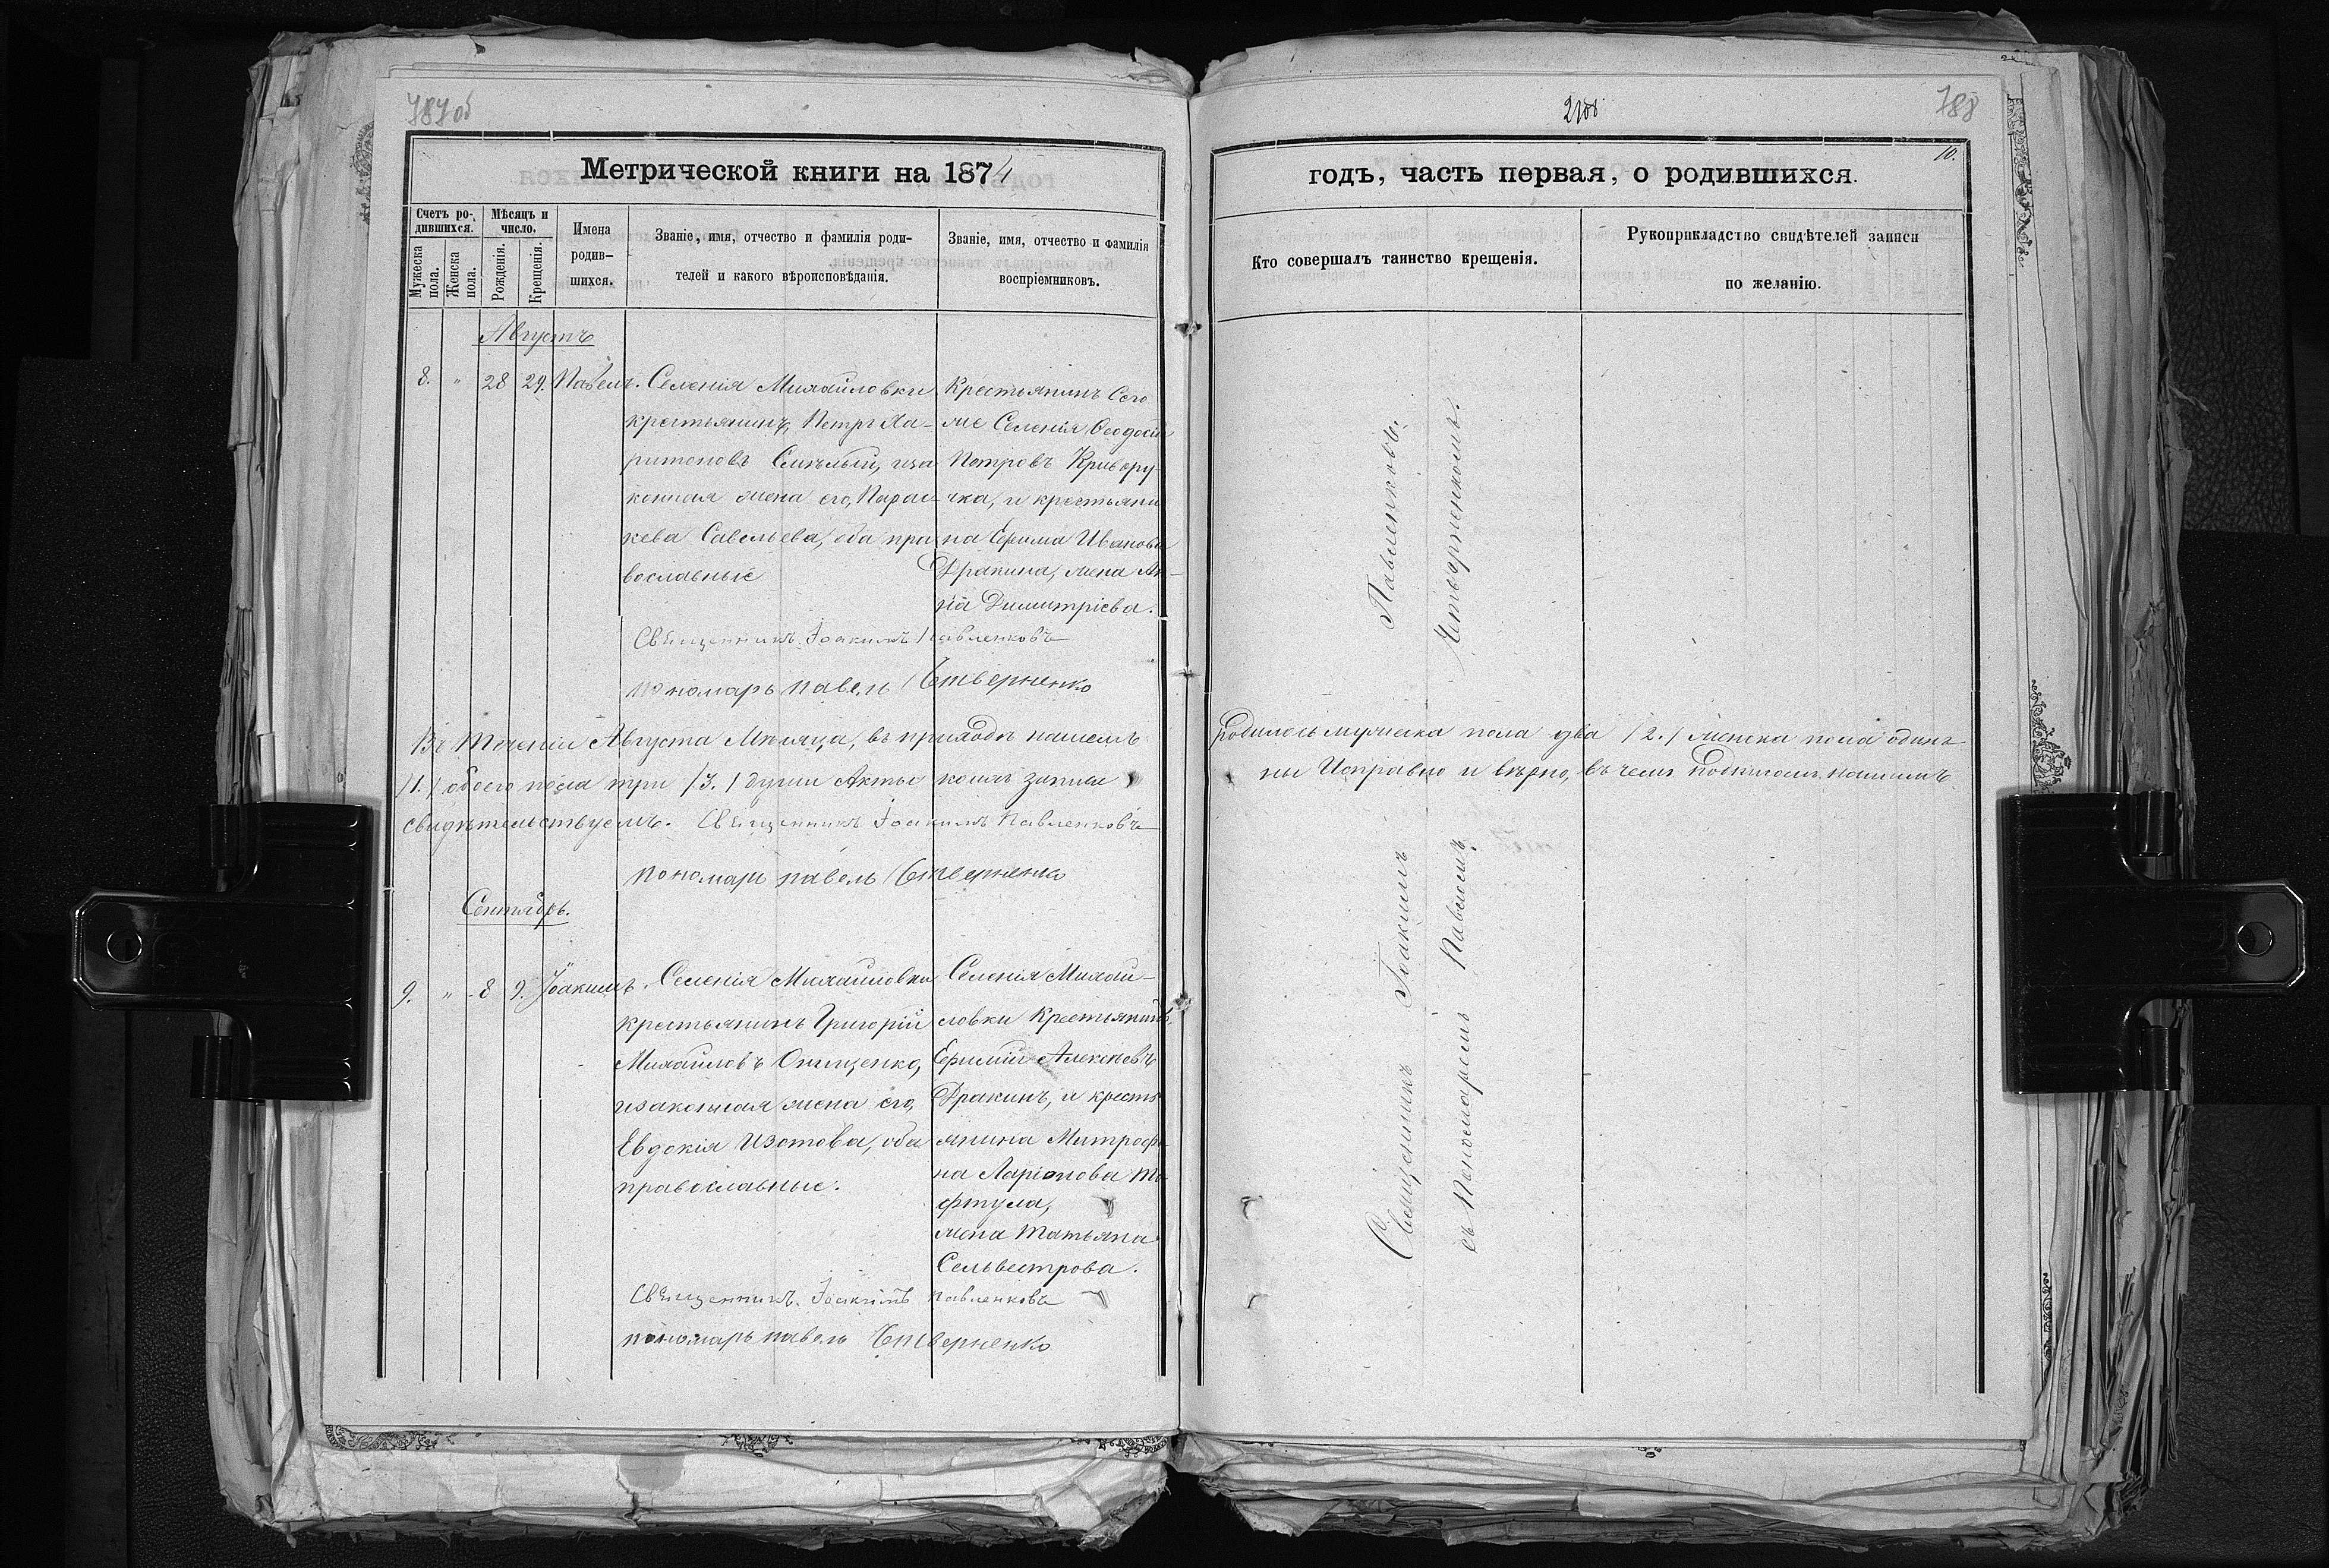 787об
Метрической книги на 1874
Счетъ ро-
дившихся.
Мужеска пола.
Женска пола.
Мѣсяцъ и
число.
Рожденія.
Крещенія.
Имена
родив-
шихся.
Званіе, имя, отчество и фамилія роди-
телей и какого вѣроисповѣданія.
Званіе, имя, отчество и фамилія
воспріемниковъ.
Августъ
8. " 28 29. Павелъ.
Селенія Михайловки
крестьянинъ, Петръ Ха-
ритоновъ Смѣлый, иза
конная жена его, Парас-
кева Савельева, оба пра
вославные
Крестьянинъ Сего
же Селенія Ѳеодосій
Петровъ Кривору-
чка, и крестьяни
на Ефима Иванова
Дракина, жена Ан-
на Димитріева.
Священникъ Іоакимъ Павленковъ
пономарь павелъ Четверненко
Въ теченіи Августа Мѣсяца, въ приходѣ нашемъ
/1./ обоего пола три /3./ души Акты коихъ записа
свидѣтельствуемъ. Священникъ Іоакимъ Павленковъ
пономарь павелъ Четверненко
Сентябрь.
9. " 8 9. Іоакимъ.
Селенія Михайловки
крестьянинъ Григорій
Михайловъ Онищенко,
изаконная жена его,
Евдокія Изотова, оба
православные.
Селенія Михай-
ловки Крестьянинъ,
Алексѣевъ
Дракинъ, и кресть
янина Митрофа-
на Ларіонова
жена Татьяна
Сельвестрова.
Священникъ Іоакимъ павленковъ
пономарь павелъ Четверненко
2108
788
10.
годъ, часть первая, о родившихся.
Кто совершалъ таинство крещенія.
Рукоприкладство свидѣтелей записи
по желанію.
Родилось мужеска пола два /2./ женска пола одинъ
ны Исправно и вѣрно, въ чемъ Подписомъ нашимъ
Священникъ Іоакимъ Павленковъ.
съ Пономаремъ Павломъ Четверненкомъ.